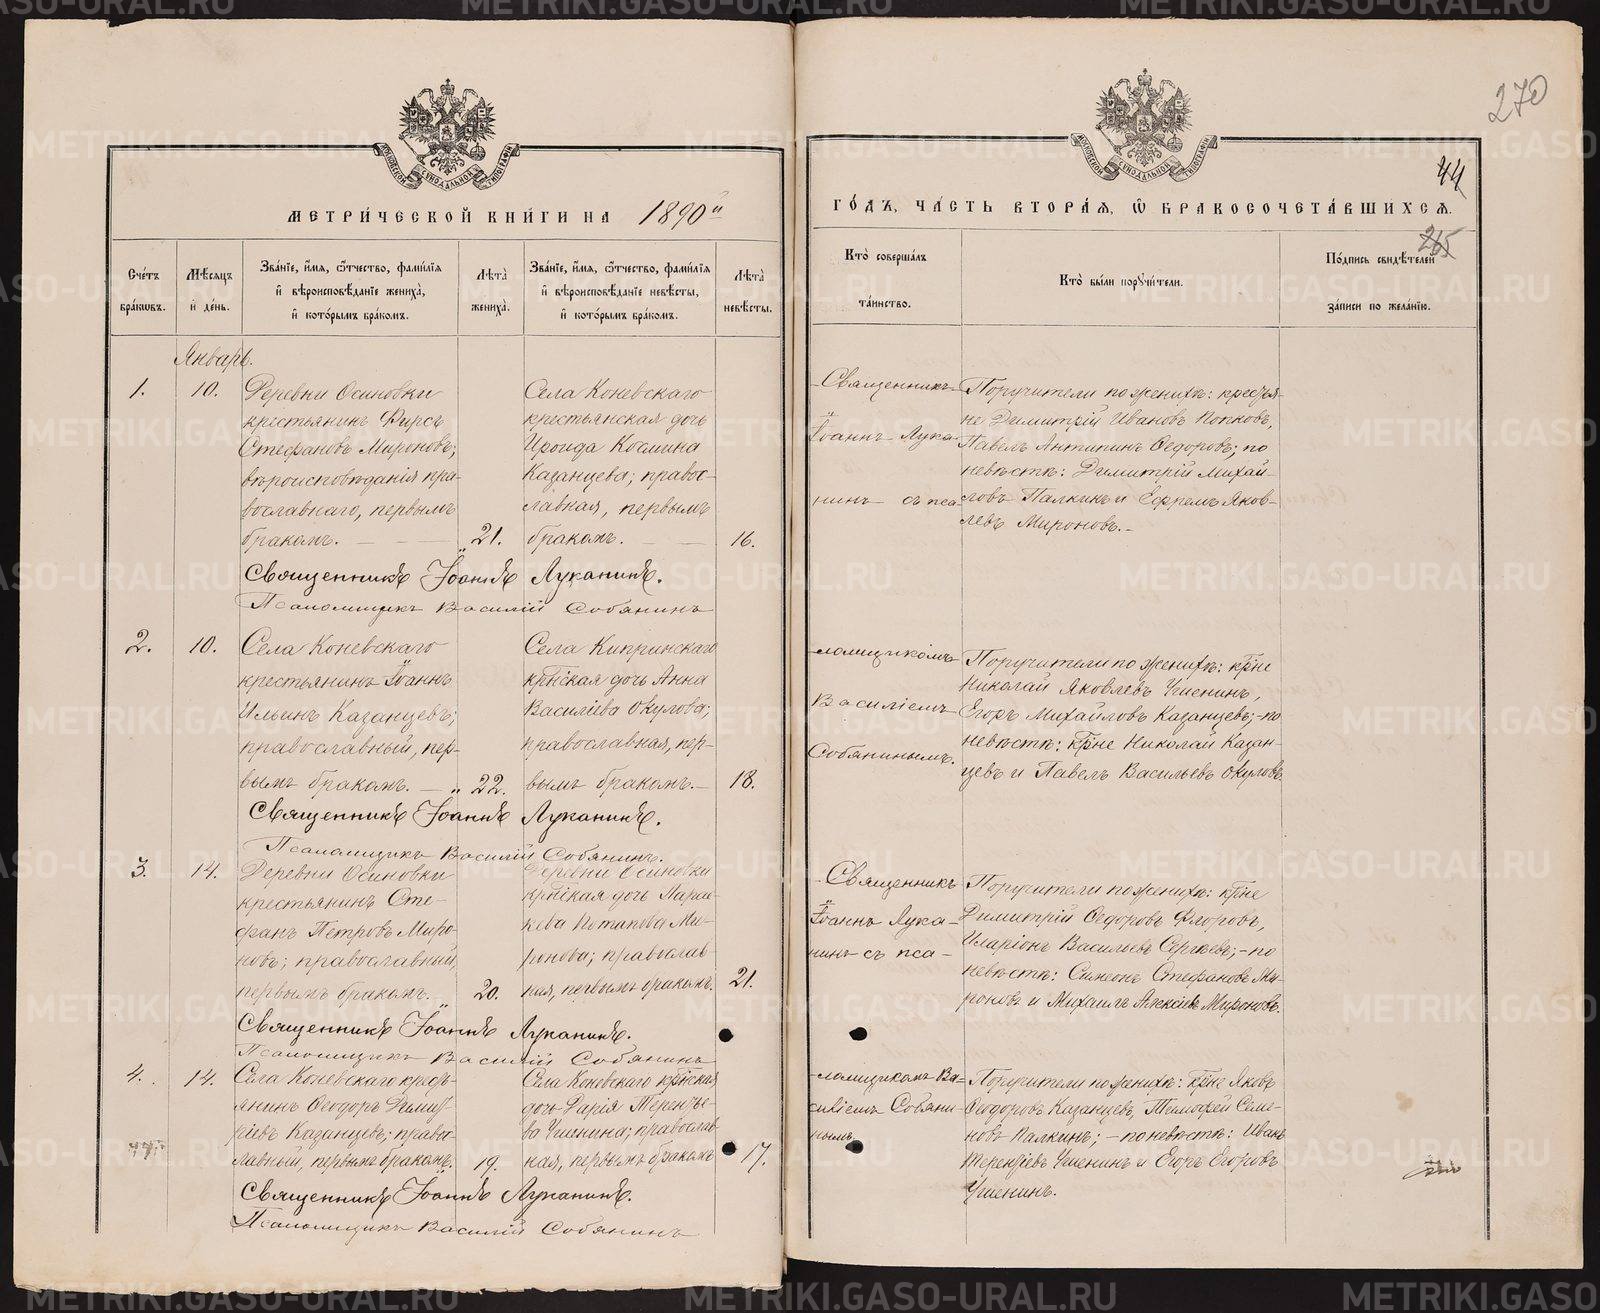 270
44
265
МОСКОВСКОЙ СѴНОДАЛЬНОЙ ТИПОГРАФІИ
МЕТРИ́ЧЕСКОЙ КНИ́ГИ НА 1890й
ГО́ДЪ, ЧА́СТЬ ВТОРА́Я, Ѡ҆ БРАКОСОЧЕТА́ВШИХСЯ.
Сче́тъ бра́кѡвъ.
Мѣ́сяцъ и҆ де́нь.
Зва́нїе, и҆́мя, ѻ҆́тчество, фамѝлїя и҆ вѣроисповѣ́данїе жениха̀, и҆ кото́рымъ бра́комъ.
Лѣта̀ жениха̀.
Зва́нїе, и҆́мя, ѻ҆́тчество, фамѝлїя и҆ вѣроисповѣ́данїе невѣ́сты, и҆ кото́рымъ бра́комъ.
Лѣта̀ невѣ́сты.
Кто̀ соверша́лъ та́инство.
Кто̀ бы́ли порꙋчи́тели.
По́дпись свидѣ́телей за́писи по жела́нїю.
Январь.
1.
10.
Деревни Осиновки
крестьянинъ Фирсъ
Стефановъ Мироновъ;
вѣроисповѣданія пра-
вославнаго, первымъ
бракомъ.
21.
Села Коневскаго
крестьянская дочь
Ироида Космина
Казанцева; правос-
лавная, первымъ
бракомъ.
16.
Священникъ
Іоаннъ Лука-
нинъ съ пса-
Поручители по женихѣ: крестья-
не Димитрій Ивановъ Попковъ,
Павелъ Антипинъ Ѳедоровъ; по
невѣстѣ: Димитрій Михай-
ловъ Палкинъ и Ефремъ Яков-
левъ Мироновъ.
Священникъ Іоаннъ Луканинъ.
Псаломщикъ Василій Собянинъ
2.
10.
Села Коневскаго
крестьянинъ Іоаннъ
Ильинъ Казанцевъ;
православный, пер-
вымъ бракомъ.
22.
Села Кипринскаго
кр̃нская дочь Анна
Василіева Окулова;
православная, пер-
вымъ бракомъ.
18.
ломщикомъ
Василіемъ
Собянинымъ.
Поручители по женихѣ: кр̃не
Николай Яковлевъ Чиенинъ,
Егоръ Михайловъ Казанцевъ; по
невѣстѣ: кр̃не Николай Казан-
цевъ и Павелъ Васильевъ Окуловъ.
Священникъ Іоаннъ Луканинъ.
Псаломщикъ Василій Собянинъ.
3.
14.
Деревни Осиновки
крестьянинъ Сте-
фанъ Петровъ Миро-
новъ; православный,
первымъ бракомъ.
20.
Деревни Осиновки
кр̃нская дочь Парас-
кева Потапова Ми-
ронова; православ-
ная, первымъ бракомъ.
21.
Священникъ
Іоаннъ Лука-
нинъ съ пса-
Поручители по женихѣ: кр̃не
Димитрій Ѳедоровъ Флоровъ,
Иларіонъ Васильевъ Сергѣевъ; по
невѣстѣ: Симеонъ Стефановъ Ми-
роновъ и Михаилъ Алексѣевъ Мироновъ.
Священникъ Іоаннъ Луканинъ.
Псаломщикъ Василій Собянинъ
4.
14.
Села Коневскаго кресть-
янинъ Ѳеодоръ Димит-
ріевъ Казанцевъ; правос-
лавный, первымъ бракомъ.
19.
Села Коневскаго кр̃нская
дочь Дарія Терентье-
ва Чиенина; православ-
ная, первымъ бракомъ
17.
ломщикомъ Ва-
силіемъ Собяни-
нымъ
Поручители по женихѣ: кр̃не Яковъ
Ѳеодоровъ Казанцевъ, Тимофей Семе-
новъ Палкинъ; по невѣстѣ: Иванъ
Терентіевъ Чиенинъ и Егоръ Егоровъ
Чиенинъ.
Священникъ Іоаннъ Луканинъ.
Псаломщикъ Василій Собянинъ
METRIKI.GASO-URAL.RU